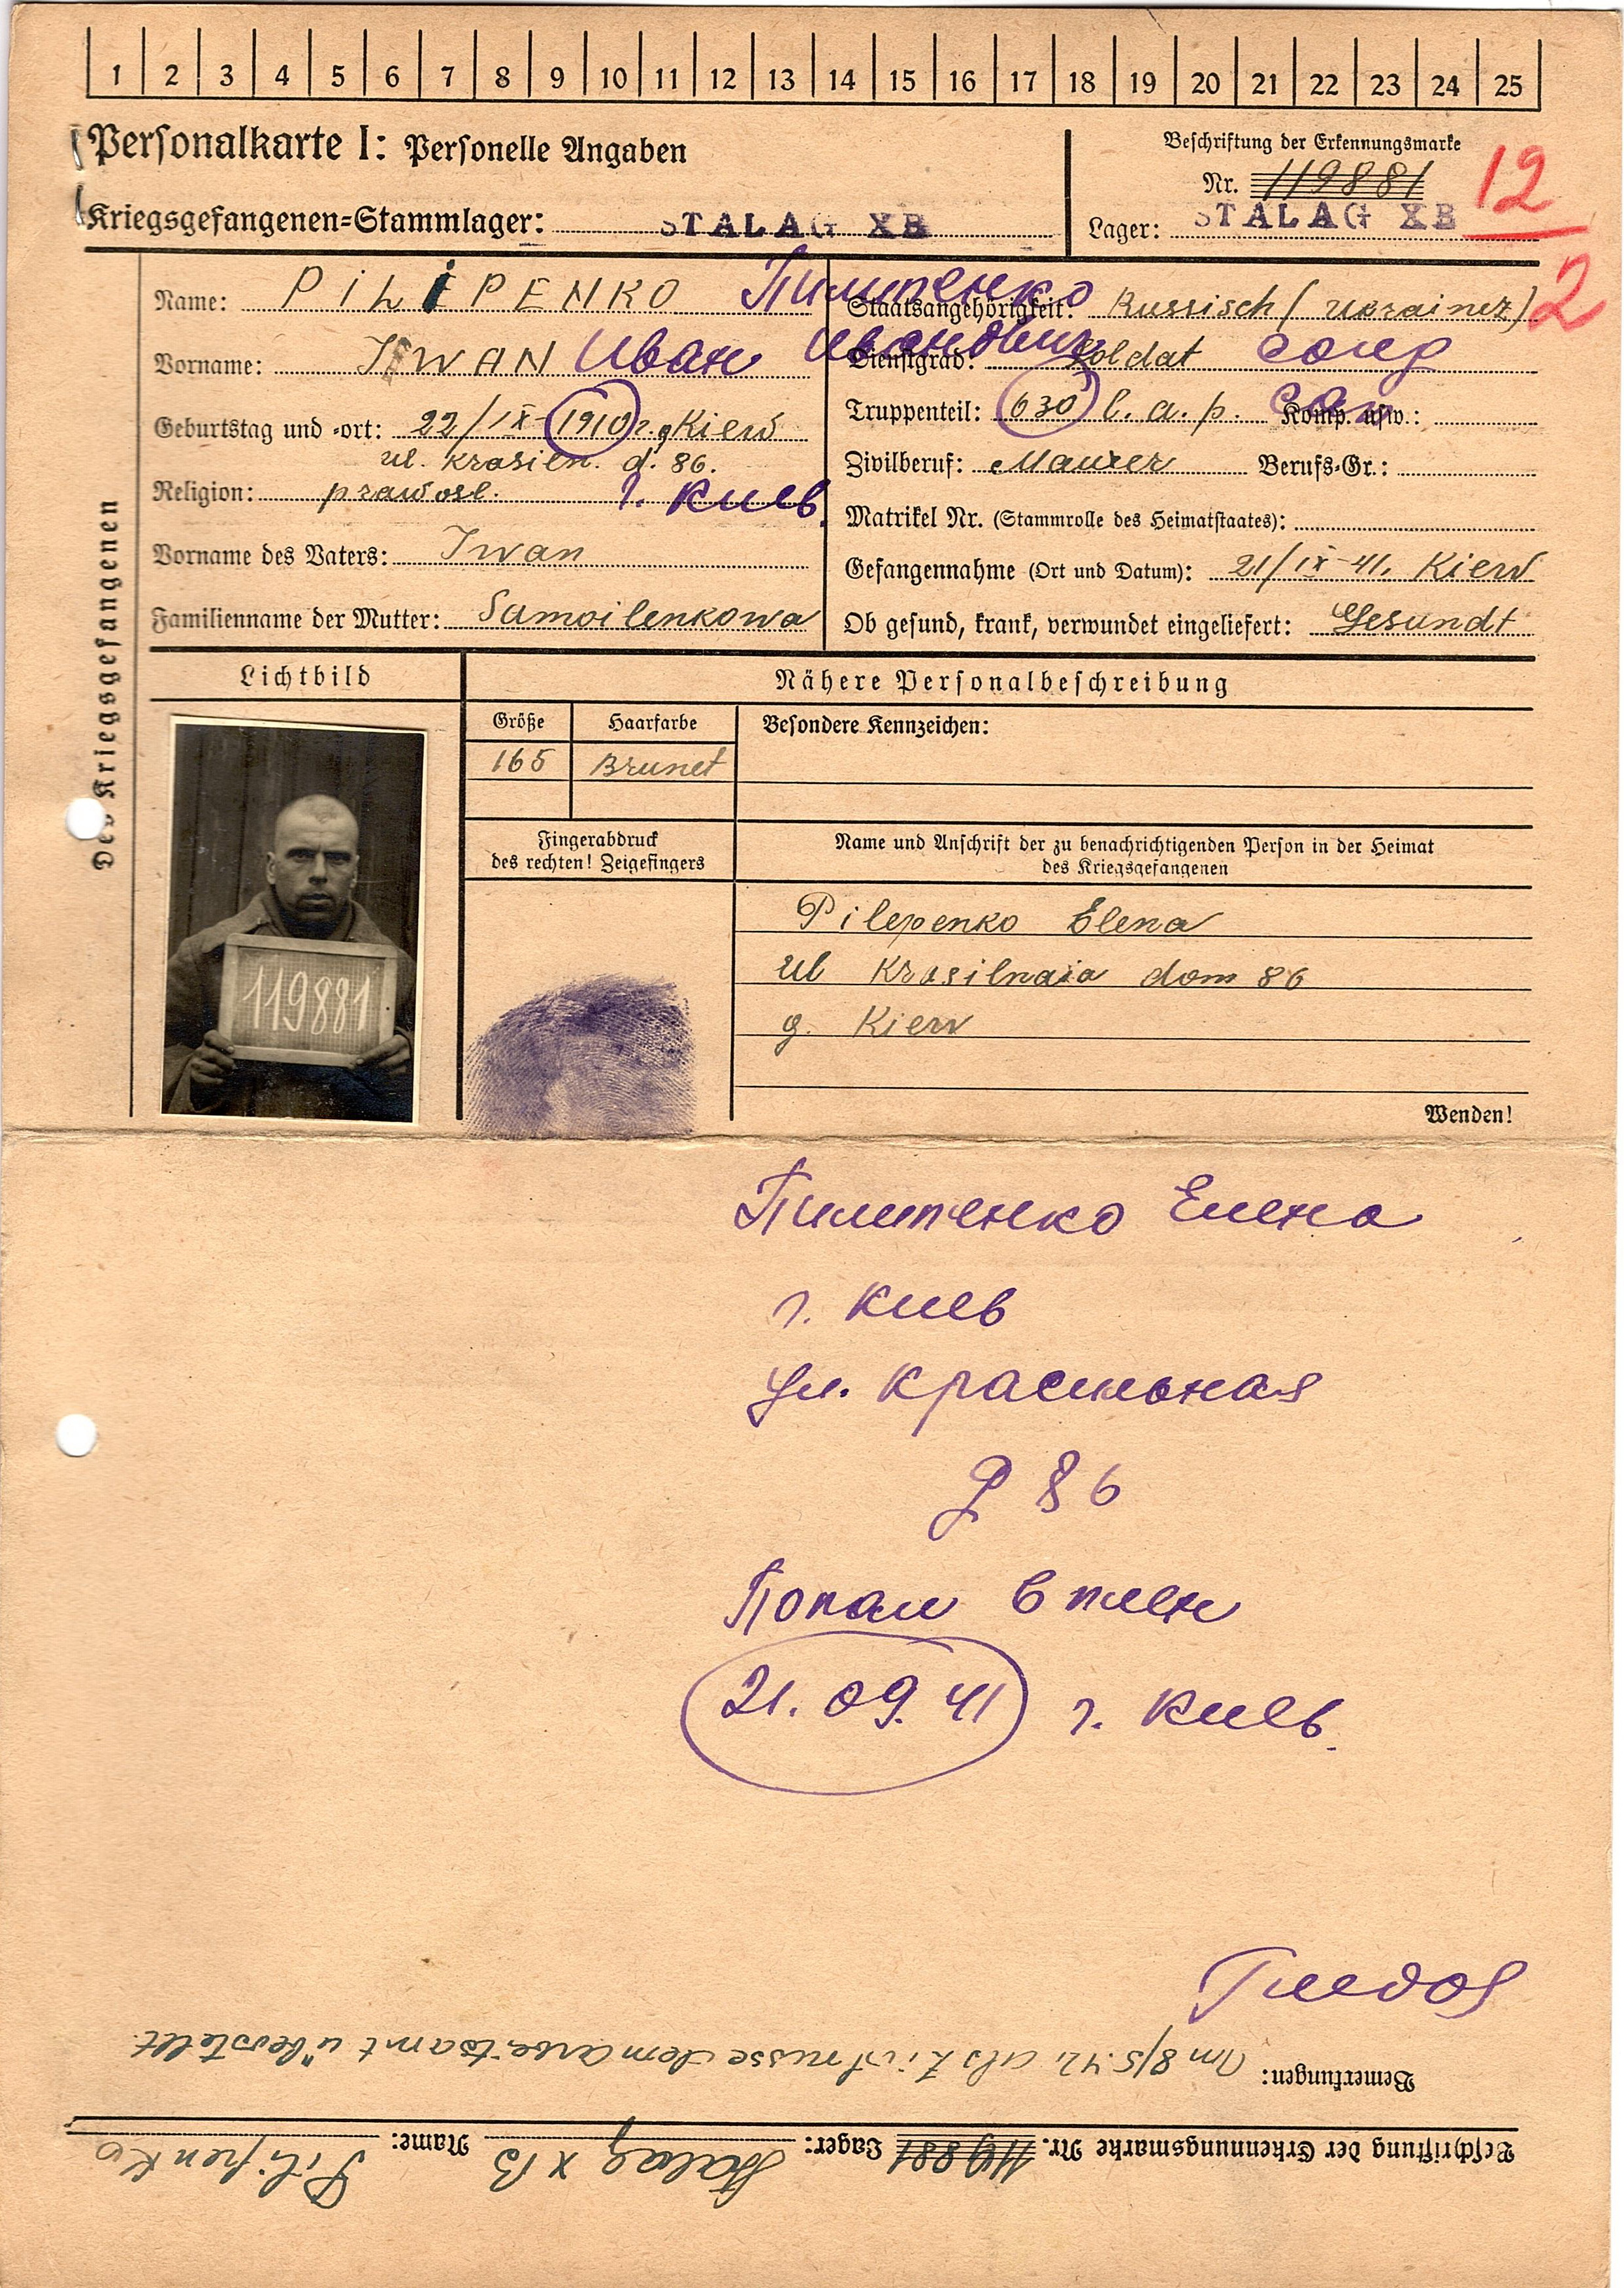 1 2 3 4 5 6 7 8 9 10 11 12 13 14 15 16 17 18 19 20 21 22 23 24 25
Personalkarte I: Personelle Angaben
Kriegsgefangenen=Stammlager: STALAG XB
Beschriftung der Erkennungsmarke
Nr. 119881
Lager: STALAG XB
12
2
Des Kriegsgefangenen
Name: PILIPENKO Пилипенко
Vorname: IWAN Иван Иванович
Geburtstag und =ort: 22/IX-1910 r. g Kiew
ul. Krasiln. d. 86.
Religion: prawosl. г. Киев.
Vorname des Vaters: Iwan
Familienname der Mutter: Samoilenkowa
Staatsangehörigkeit: Russisch (Ukrainer)
Dienstgrad: Soldat солд
Truppenteil: 630 l. a. p. Komp. usw.:
Zivilberuf: Maurer Berufs=Gr.:
Matrikel Nr. (Stammrolle des Heimatstaates):
Gefangennahme (Ort und Datum): 21/IX-41. Kiew
Ob gesund, krank, verwundet eingeliefert: Gesundt
Lichtbild
119881
Nähere Personalbeschreibung
Größe Haarfarbe Besondere Kennzeichen:
165 Brunet
Fingerabdruck
des rechten! Zeigefingers
Name und Anschrift der zu benachrichtigenden Person in der Heimat
des Kriegsgefangenen
Pilepenko Elena
ul Krasilnaia dom 86
g. Kiew
Wenden!
Пилипенко Елена
г. Киев
ул. Красильная
д 86
Попал в плен
21.09.41 г. Киев.
Bemerkungen: Am 8/5.42 als Zivilrusse dem Arbeitsamt überstellt.
Beschriftung der Erkennungsmarke Nr. 119881 Lager: Stalag XB Name: Pilipenko